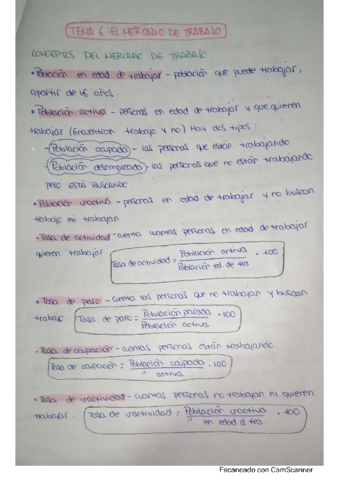 TEMA 6: EL MERCADO DE TRABAJO
CONCEPTOS DEL MERCADO DE TRABAJO
• Población en edad de trabajar - población que puede trabajar,
a partir de 16 años.
• Población activa - personas en edad de trabajar y que quieren
trabajar (Encuentran trabajo y no) Hay dos tipos
- Población ocupada - las personas que están trabajando
Población desempleada - las personas que no están trabajando
pero está buscando
• Población inactiva - personas en edad de trabajar y no buscan
trabajo ni trabajan
- Tasa de actividad - cuenta cuantas personas en edad de trabajar
quieren trabajar
Tasa de actividad = Población activa / Población ed de tra. · 100
• Tasa de paro - cuenta las personas que no trabajan y buscan
trabajo
Tasa de paro = Población parada / Población activa · 100
• Tasa de ocupación - cuantas personas están trabajando.
Tasa de ocupación = Población ocupada / " activa · 100
• Tasa de inactividad - cuantas personas no trabajan ni quieren
trabajar.
Tasa de inactividad = Población inactiva / " en edad d tra. · 100
Escaneado con CamScanner